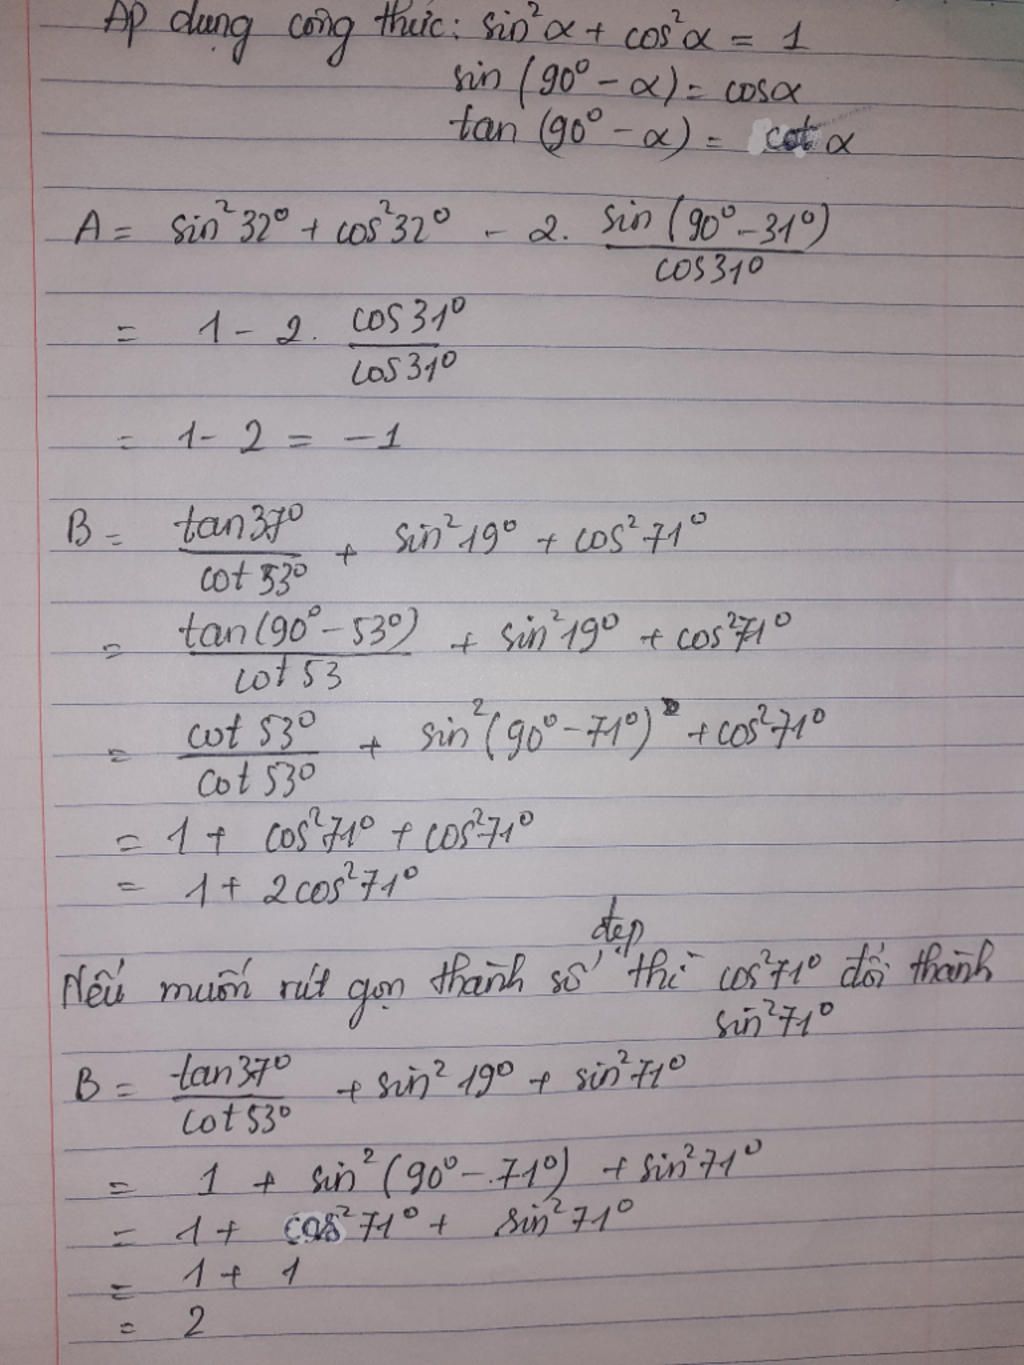 Áp dụng công thức: sin²α + cos²α = 1
sin (90° - α) = cosα
tan (90° - α) = cot α
A = sin²32° + cos²32° - 2. sin (90° - 31°) / cos31°
= 1 - 2. cos31° / cos31°
= 1 - 2 = -1
B = tan37° / cot 53° + sin²19° + cos²71°
= tan(90° - 53°) / cot 53 + sin²19° + cos²71°
= cot 53° / cot 53° + sin²(90° - 71°) + cos²71°
= 1 + cos²71° + cos²71°
= 1 + 2cos²71°
Nếu muốn rút gọn thành số đẹp thì cos²71° đổi thành
sin²71°
B = tan37° / cot53° + sin²19° + sin²71°
= 1 + sin²(90° - 71°) + sin²71°
= 1 + cos²71° + sin²71°
= 1 + 1
= 2